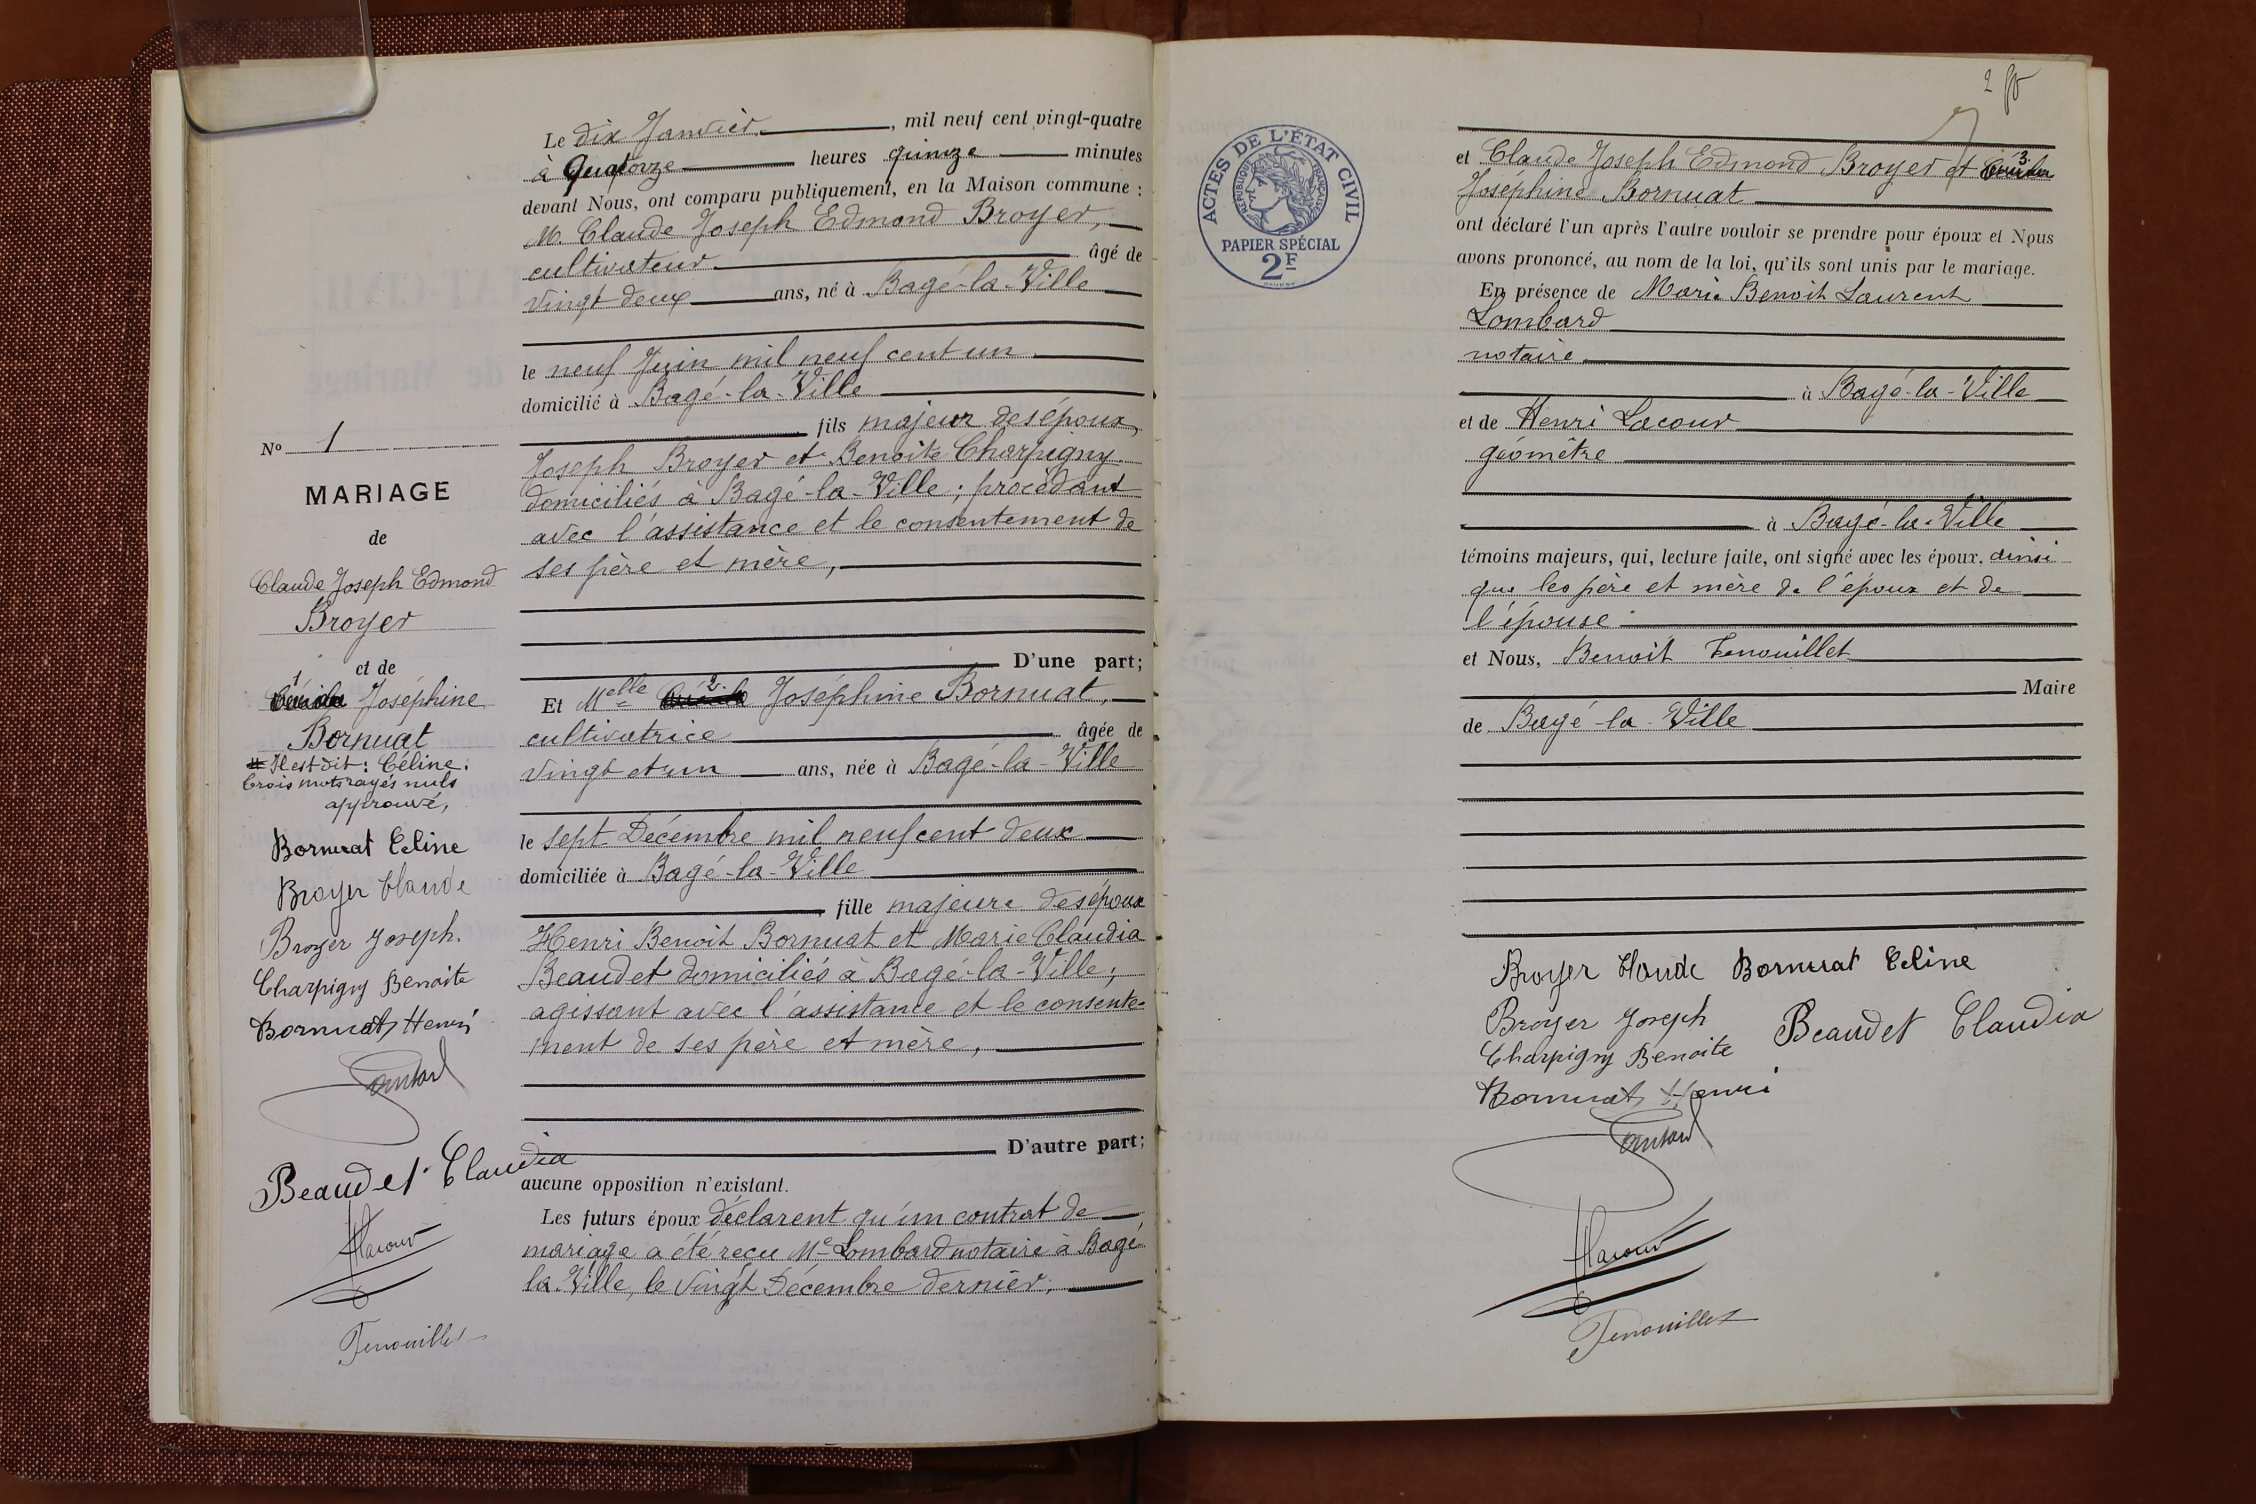 Le dix Janvier, mil neuf cent vingt-quatre
à Quatorze heures quinze minutes
devant Nous, ont comparu publiquement, en la Maison commune :
M. Claude Joseph Edmond Broyer,
cultivateur âgé de
vingt deux ans, né à Bagé-la-Ville
le neuf Juin mil neuf cent un
domicilié à Bagé-la-Ville
fils majeur des époux
Joseph Broyer et Benoite Charpigny
domiciliés à Bagé-la-Ville ; procédant
avec l'assistance et le consentement de
ses père et mère,
D'une part;
Et Melle 2. Joséphine Bornuat,
cultivatrice âgée de
vingt et un ans, née à Bagé-la-Ville
le sept Décembre mil neuf cent deux
domiciliée à Bagé-la-Ville
fille majeure des époux
Henri Benoit Bornuat et Marie Claudia
Beaudet domiciliés à Bagé-la-Ville,
agissant avec l'assistance et le consente-
ment de ses père et mère,
D'autre part;
aucune opposition n'existant.
Les futurs époux déclarent qu'un contrat de
mariage a été reçu Me Lombard notaire à Bagé
la-Ville, le vingt Décembre dernier.
No 1
MARIAGE
de
Claude Joseph Edmond
Broyer
et de
1
Joséphine
Bornuat
Il est dit : Céline.
trois mots rayés nuls
approuvé,
Bornuat Celine
Broyer Claude
Broyer Joseph.
Charpigny Benoite
Bornuat Henri
Lombard
Beaudet Claudia
HLacour
Fenouillet
2
ACTES DE L'ÉTAT CIVIL
RÉPUBLIQUE FRANÇAISE
PAPIER SPÉCIAL
2F
et Claude Joseph Edmond Broyer et 3.
Joséphine Bornuat
ont déclaré l'un après l'autre vouloir se prendre pour époux et Nous
avons prononcé, au nom de la loi, qu'ils sont unis par le mariage.
En présence de Marie Benoit Laurent
Lombard
notaire
à Bagé-la-Ville
et de Henri Lacour
géomètre
à Bagé-la-Ville
témoins majeurs, qui, lecture faite, ont signé avec les époux, ainsi
que les père et mère de l'époux et de
l'épouse
et Nous, Benoit Fenouillet
Maire
de Bagé-la-Ville
Broyer Claude Bornuat Celine
Broyer Joseph Beaudet Claudia
Charpigny Benoite
Bornuat Henri
Lombard
HLacour
Fenouillet